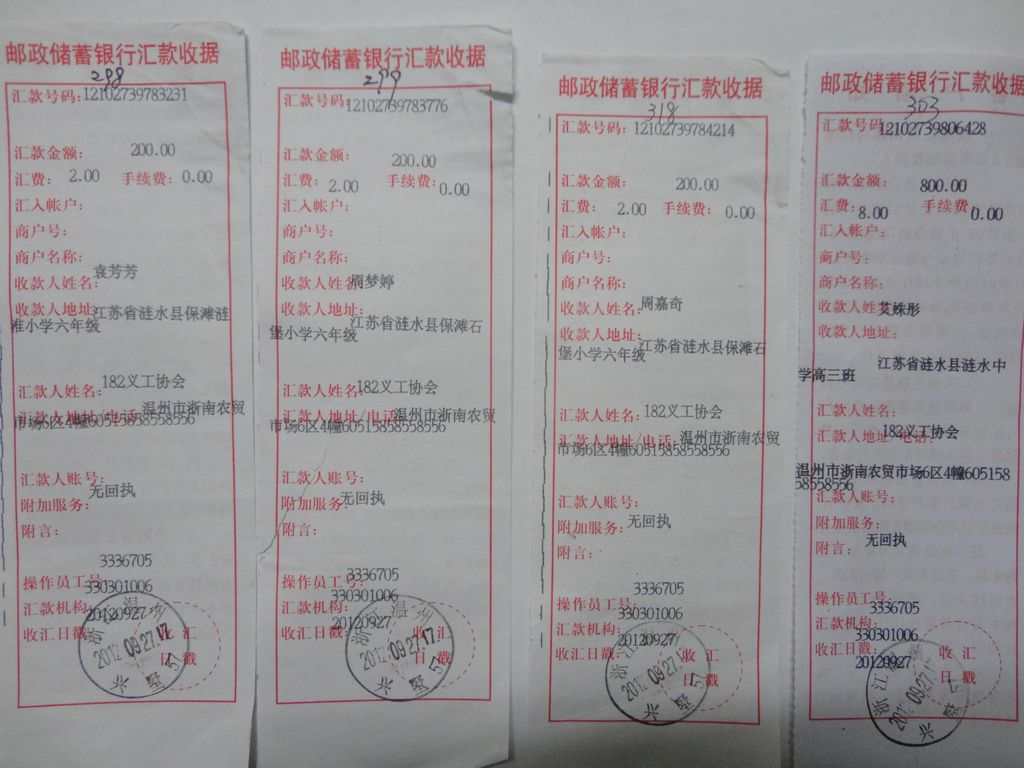 邮政储蓄银行汇款收据
298
汇款号码:12102739783231
汇款金额: 200.00
汇费: 2.00 手续费: 0.00
汇入帐户:
商户号:
商户名称:
收款人姓名:袁芳芳
收款人地址:江苏省涟水县保滩涟
淮小学六年级
汇款人姓名:182义工协会
汇款人地址/电话:温州市浙南农贸
市场6区4幢60515858558556
汇款人账号:
附加服务:无回执
附言:
3336705
操作员工号:
330301006
汇款机构:
20120927
收汇日戳:
收汇
日戳
浙江温州
2012.09.27.17
兴墅57
邮政储蓄银行汇款收据
299
汇款号码:12102739783776
汇款金额: 200.00
汇费: 2.00 手续费: 0.00
汇入帐户:
商户号:
商户名称:
收款人姓名:周梦婷
收款人地址:江苏省涟水县保滩石
堡小学六年级
汇款人姓名:182义工协会
汇款人地址/电话:温州市浙南农贸
市场6区4幢60515858558556
汇款人账号:
附加服务:无回执
附言:
3336705
操作员工号:
330301006
汇款机构:
20120927
收汇日戳:
收汇
日戳
浙江温州
2012.09.27.17
兴墅57
邮政储蓄银行汇款收据
318
汇款号码:12102739784214
汇款金额: 200.00
汇费: 2.00 手续费: 0.00
汇入帐户:
商户号:
商户名称:
收款人姓名:周嘉奇
收款人地址:江苏省涟水县保滩石
堡小学六年级
汇款人姓名:182义工协会
汇款人地址/电话:温州市浙南农贸
市场6区4幢60515858558556
汇款人账号:
附加服务:无回执
附言:
3336705
操作员工号:
330301006
汇款机构:
20120927
收汇日戳:
收汇
日戳
浙江
09.27
兴墅57
邮政储蓄银行汇款收据
303
汇款号码:12102739806428
汇款金额: 800.00
汇费: 8.00 手续费: 0.00
汇入帐户:
商户号:
商户名称:
收款人姓名:艾姝彤
收款人地址:
江苏省涟水县涟水中
学高三班
汇款人姓名:
182义工协会
汇款人地址/电话:
温州市浙南农贸市场6区4幢605158
58558556
汇款人账号:
附加服务:
无回执
附言:
3336705
操作员工号:
汇款机构:
330301006
收汇日戳:
20120927
收汇
日戳
浙江
09.27
兴